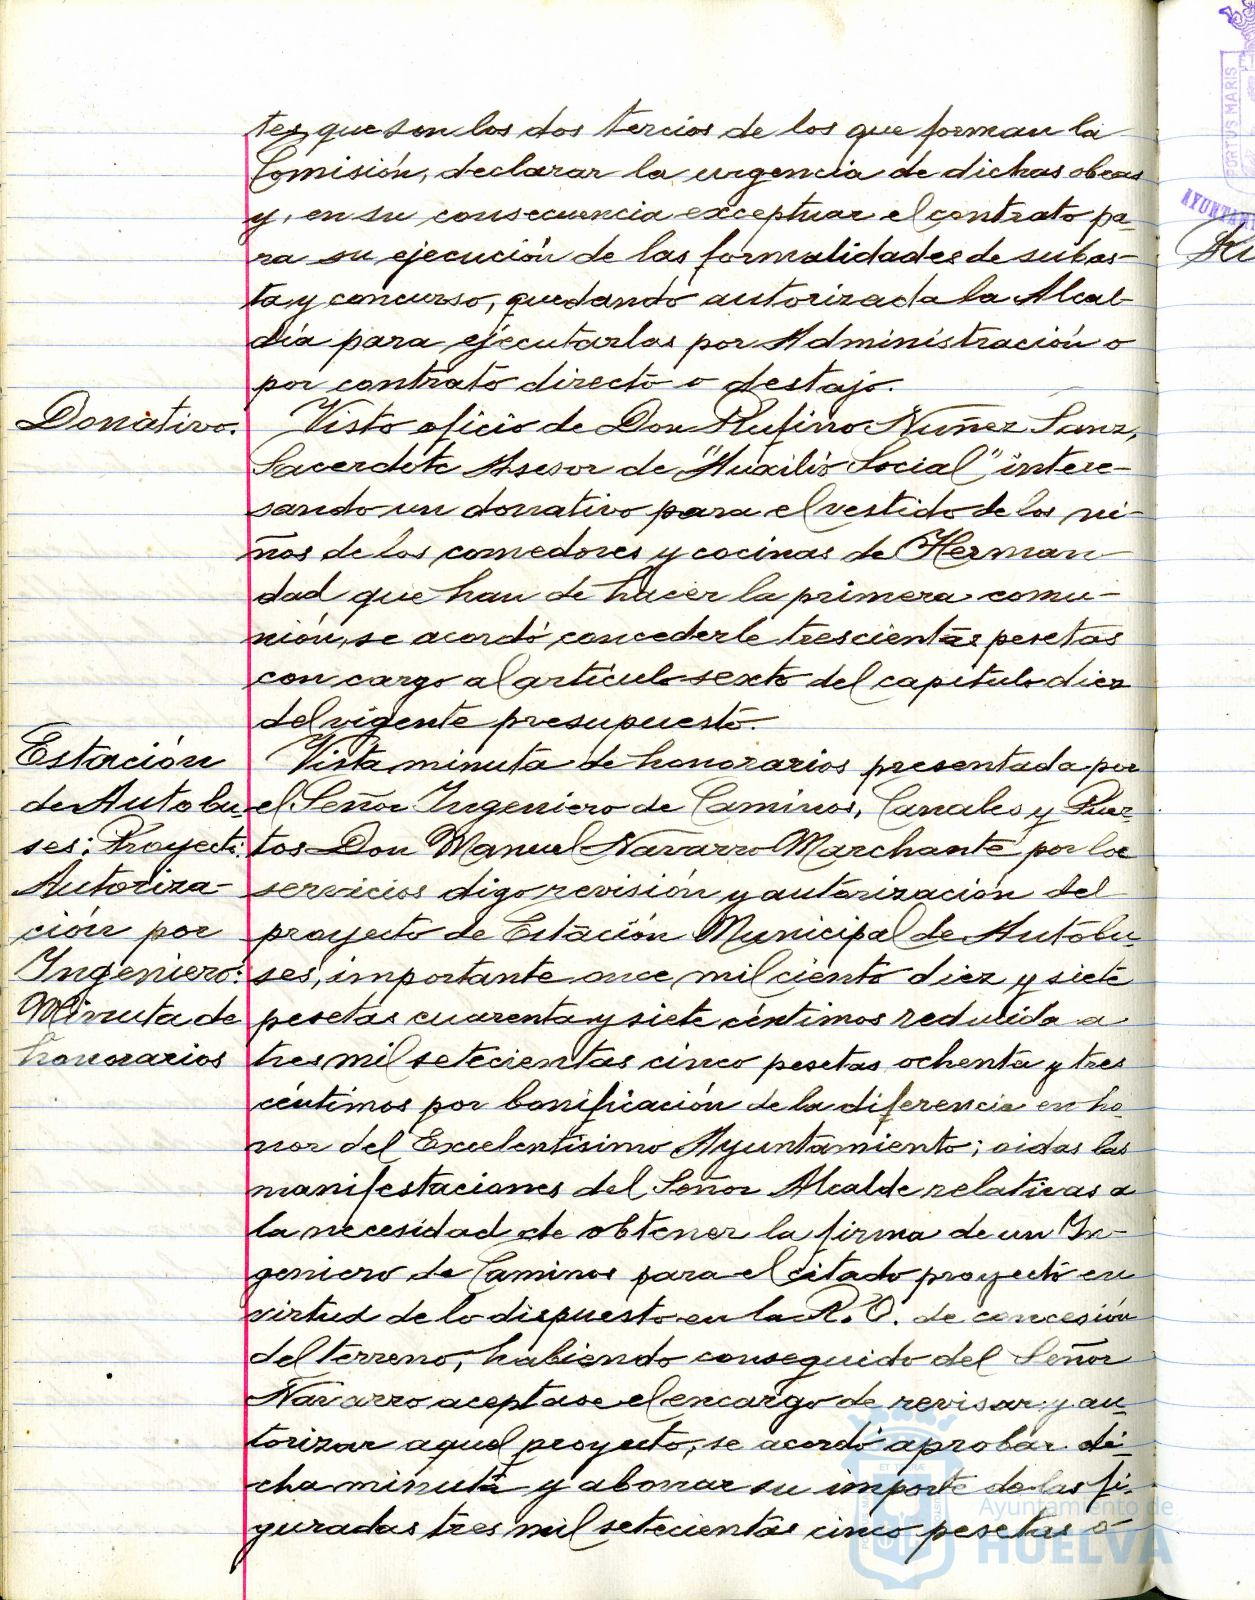 tes, que son los dos tercios de los que forman la
Comisión, declarar la urgencia de dichas obras
y, en su consecuencia exceptuar el contrato pa-
ra su ejecución de las formalidades de subas-
ta y concurso, quedando autorizada la Alcal-
día para ejecutarlas por Administración o
por contrato directo o destajo.
Donativo.
Visto oficio de Don Rufino Nuñez Sanz,
Sacerdote Asesor de "Auxilio Social" intere-
sando un donativo para el vestido de los ni-
ños de los comedores y cocinas de Herman-
dad que han de hacer la primera comu-
nión, se acordó concederle trescientas pesetas
con cargo al artículo sexto del capítulo diez
del vigente presupuesto.
Estación
de Autobu-
ses: Proyecto:
Autoriza-
ción por
Ingeniero:
Minuta de
honorarios
Vista minuta de honorarios presentada por
el Señor Ingeniero de Caminos, Canales y Puer-
tos Don Manuel Navarro Marchante por los
servicios digo revisión y autorización del
proyecto de Estación Municipal de Autobu-
ses, importante once mil ciento diez y siete
pesetas cuarenta y siete céntimos reducida a
tres mil setecientas cinco pesetas ochenta y tres
céntimos por bonificación de la diferencia en ho-
nor del Excelentísimo Ayuntamiento; oidas las
manifestaciones del Señor Alcalde relativas a
la necesidad de obtener la firma de un In-
geniero de Caminos para el citado proyecto en
virtud de lo dispuesto en la R. O. de concesión
del terreno, habiendo conseguido del Señor
Navarro aceptase el encargo de revisar y au-
torizar aquel proyecto, se acordó aprobar di-
cha minuta y abonar su importe de las fi-
guradas tres mil setecientas cinco pesetas o-
PORTUS MARIS
Ayuntamiento de
HUELVA